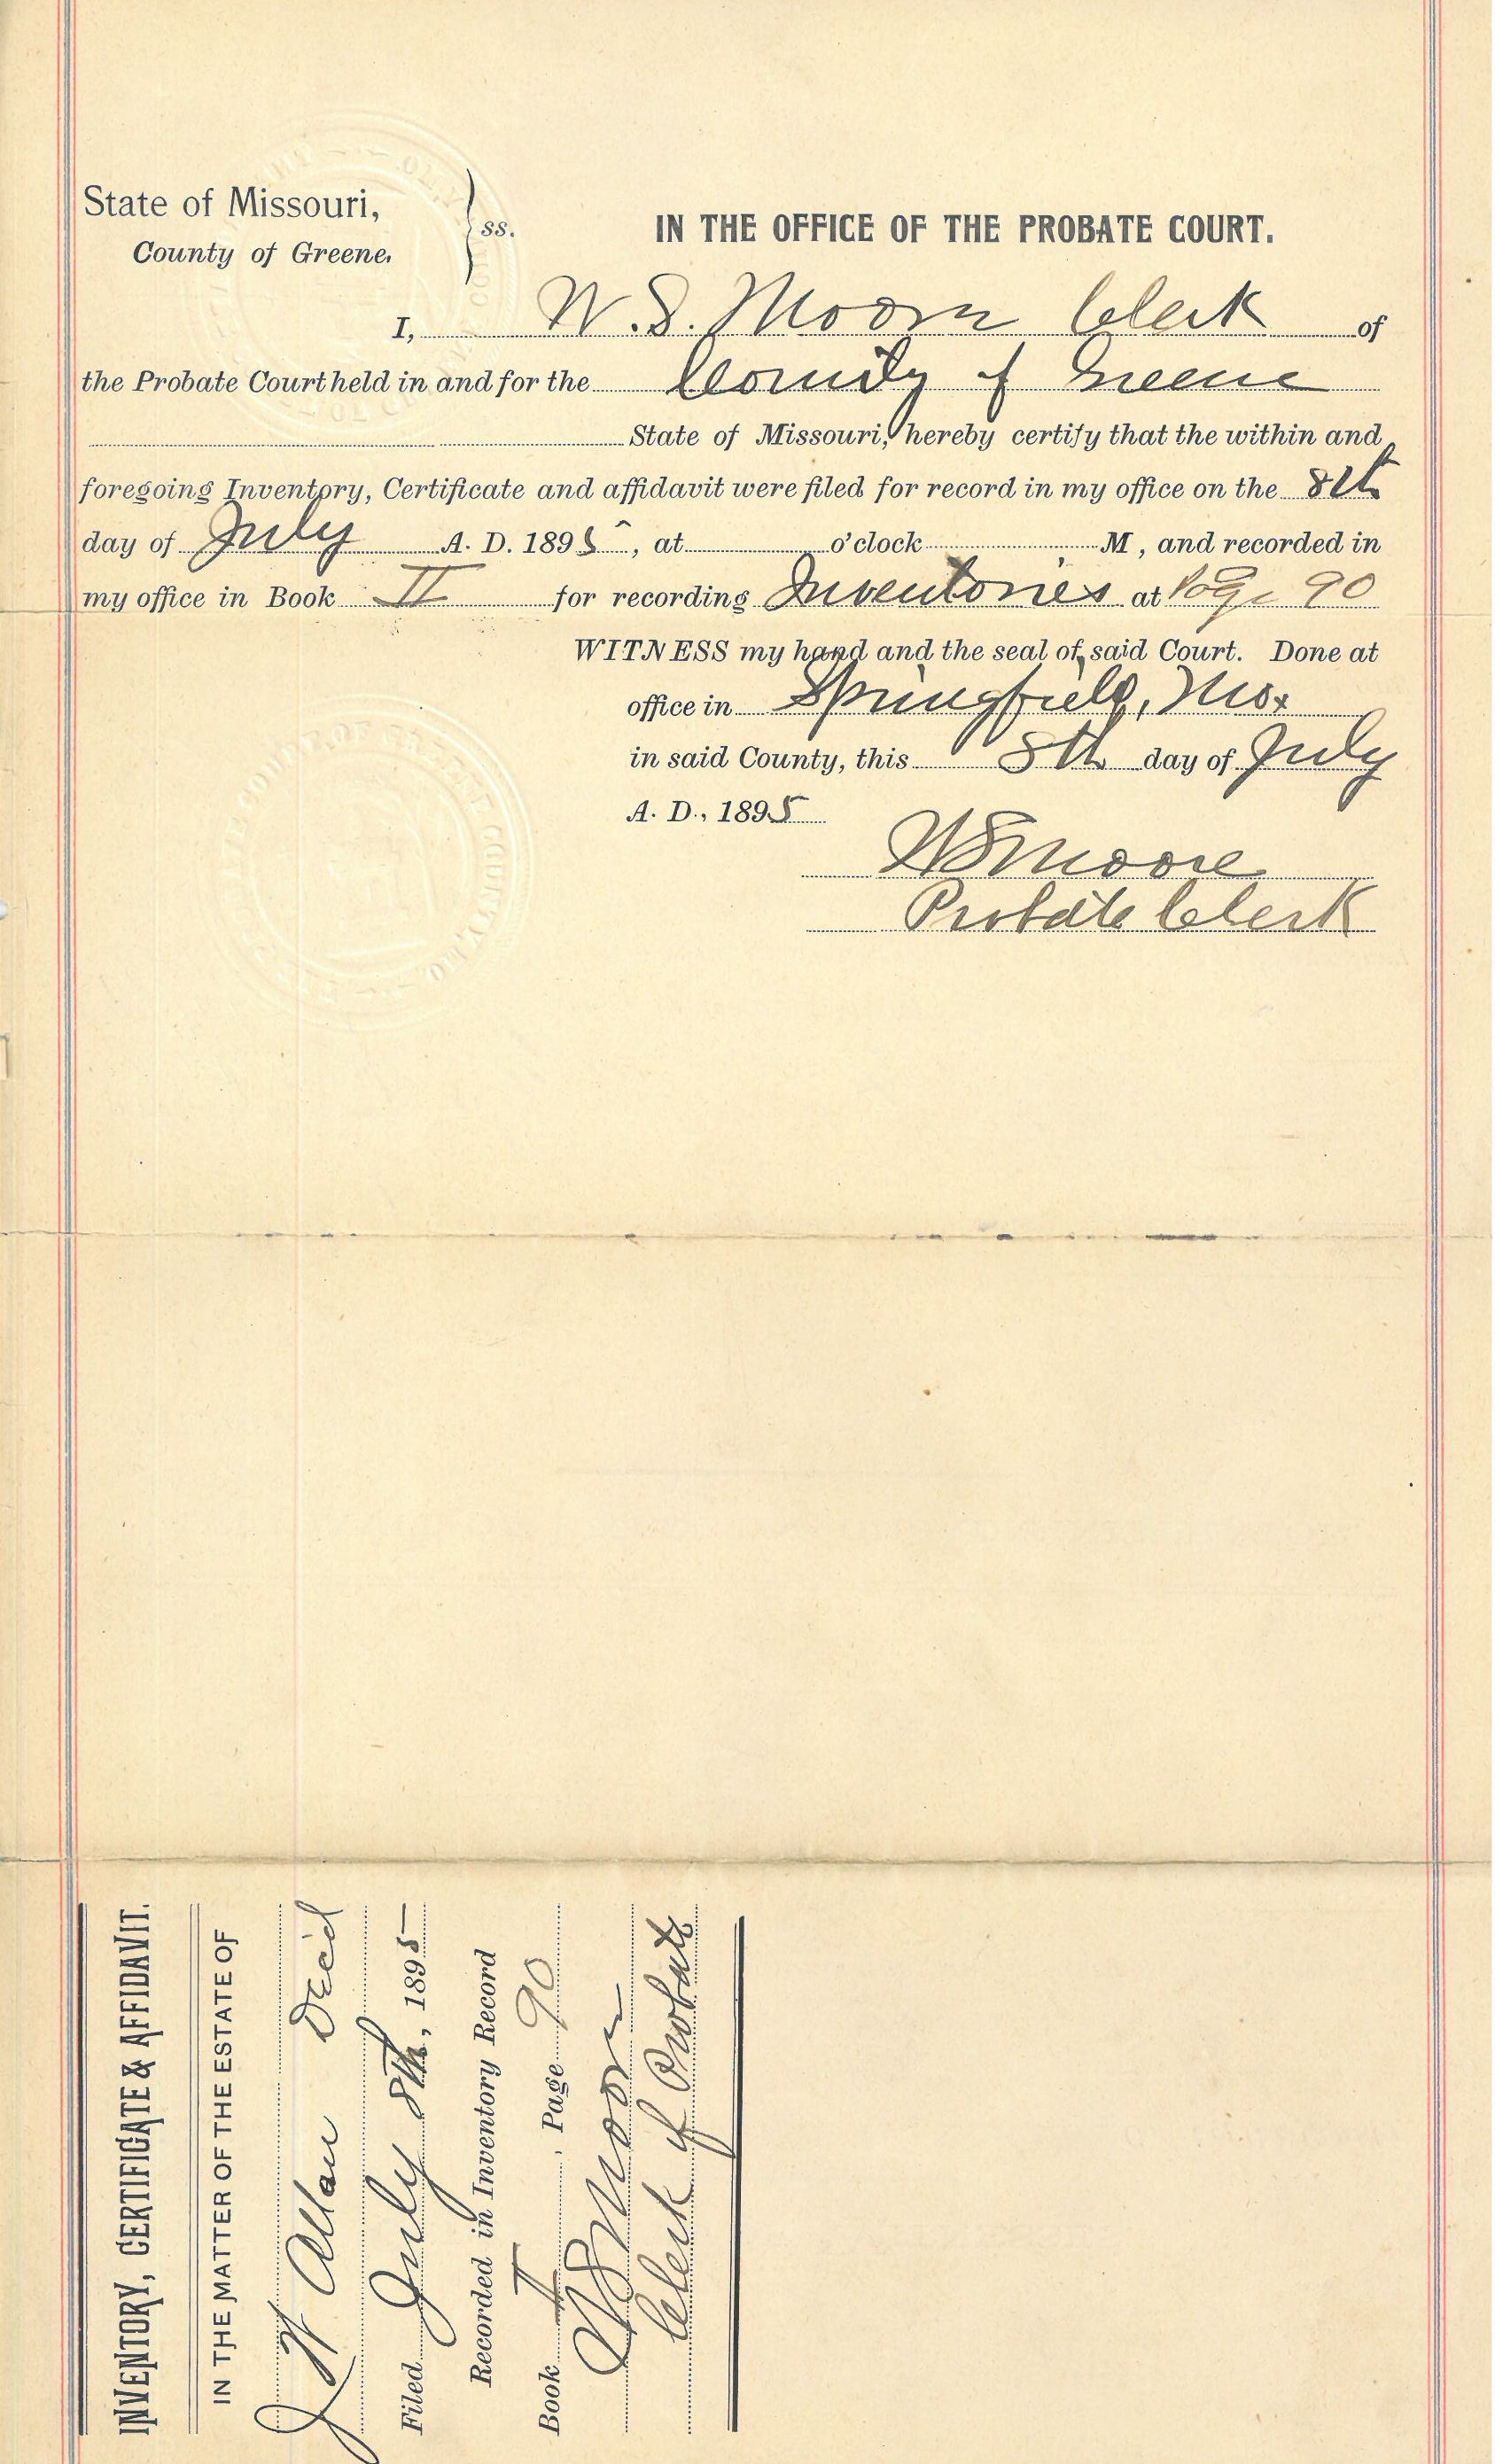 State of Missouri,
County of Greene.
ss.
IN THE OFFICE OF THE PROBATE COURT.
I, W. S. Moore Clerk of
the Probate Court held in and for the County of Greene
State of Missouri, hereby certify that the within and
foregoing Inventory, Certificate and affidavit were filed for record in my office on the 8th
day of July A. D. 1895, at o'clock M, and recorded in
my office in Book II for recording Inventories at Page 90
WITNESS my hand and the seal of said Court. Done at
office in Springfield, Mo.
in said County, this 8th day of July
A. D., 1895
W S Moore
Probate Clerk
INVENTORY, CERTIFICATE & AFFIDAVIT.
IN THE MATTER OF THE ESTATE OF
J W Allan Decd
Filed July 8th, 1895
Recorded in Inventory Record
Book II, Page 90
W S Moore
Clerk of Probate